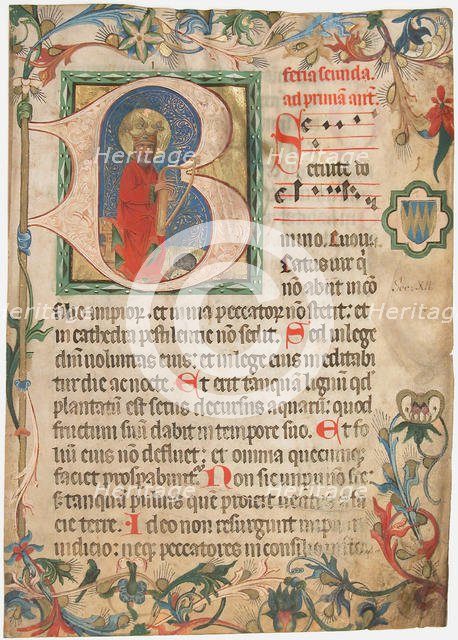 feria secunda.
ad primā ant̄.
Seruite do
B
mino. Euoua
eatus uir q
nō abiit in cō
silio impior, et in uia peccator nō stetit: et
in cathedra pestilentie nō sedit. Sed in lege
dn̄i voluntas eius: et in lege eius meditabi
tur die ac nocte. Et erit tanquā lignū qd
plantatū est secus decursus aquarū: quod
fructum suū dabit in tempore suo. Et fo
liū eius nō defluet: et omnia quecunq;
faciet prosperabunt̄. Non sic impii nō sic:
s; tanquā puluis quē proicit uentus a fa
cie terre. Ideo non resurgunt impii in
iudicio: neq; peccatores in consilio iustor
Heritage Images